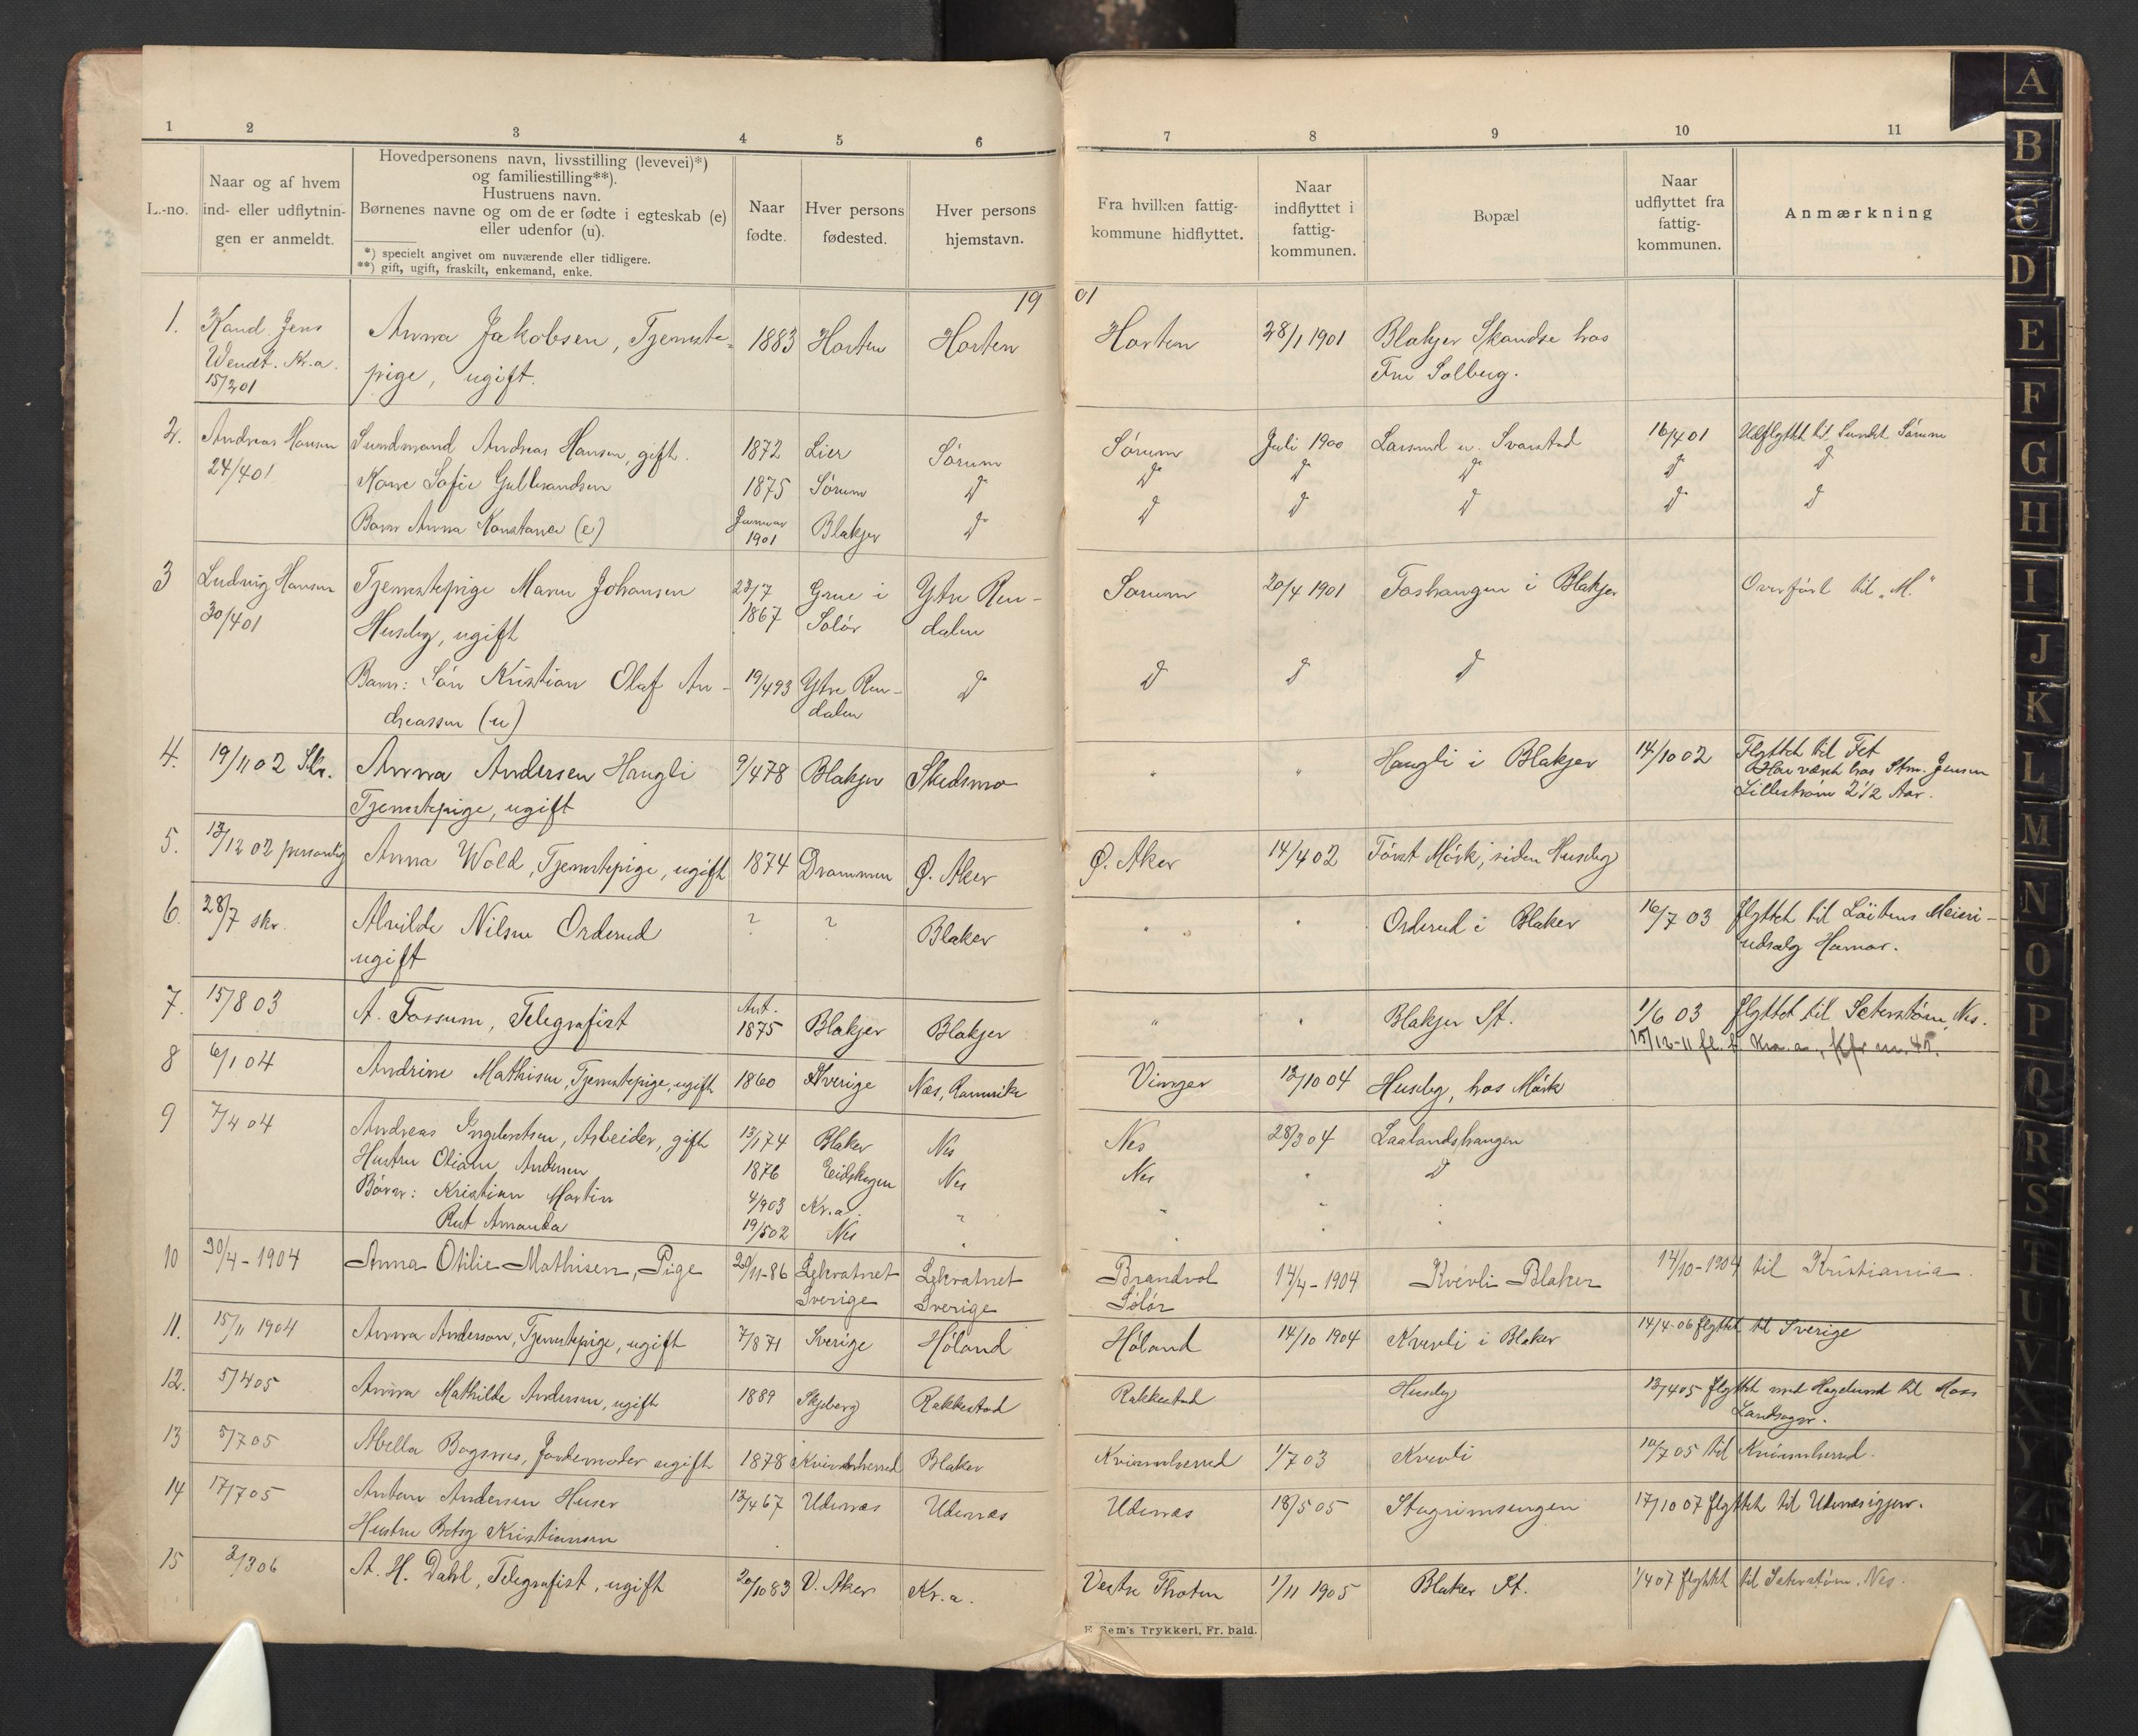 1 2 3 4 5 6 7 8 9 10 11
L.-no.
Naar og af hvem
ind- eller udflytnin-
gen er anmeldt.
Hovedpersonens navn, livsstilling (levevei)*)
og familiestilling**).
Hustruens navn.
Børnenes navne og om de er fødte i egteskab (e)
eller udenfor (u).
*) specielt angivet om nuværende eller tidligere.
**) gift, ugift, fraskilt, enkemand, enke.
Naar
fødte.
Hver persons
fødested.
Hver persons
hjemstavn.
Fra hvilken fattig-
kommune hidflyttet.
Naar
indflyttet i
fattig-
kommunen.
Bopæl
Naar
udflyttet fra
fattig-
kommunen.
Anmærkning
1901
1. Kand. Jens Anna Jakobsen, Tjeneste- 1883 Horten Horten Horten 28/1 1901 Blakjer Skandse hos
Wendt. Kr.a. pige, ugift. Fru Solberg.
15/2 01
2. Andreas Hansen Sundmand Andreas Hansen, gift. 1872 Lier Sørum Sørum Juli 1900 Svarstad 16/4 01 Udflyttet til Sundet Sørum
24/4 01 Kone Sofie Gulbrandsen 1875 Sørum D° D° D° D° D° D°
Barn Anna Konstance (e) Januar 1901 Blakjer D° D° D° D° D° D°
3 Ludvig Hansen Tjenestepige Maren Johansen 23/7 Grue i Ytre Ren- Sørum 20/4 1901 Foshaugen i Blakjer Overført til "M."
30/4 01 Huseby, ugift 1867 Solør dalen
Barn: Søn Kristian Olaf An- 19/4 93 Ytre Ren- D° D° D° D°
dreassen (u) dalen
4. 19/11 02 Skr. Anna Andersen Haugli 9/4 78 Blakjer Skedsmo " " Haugli i Blakjer 14/10 02 Flyttet til Fet
Tjenestepige, ugift Har været hos Stm. Jensen
Lillestrøm 2 1/2 Aar.
5. 13/12 02 personlig Anna Wold, Tjenestepige, ugift 1874 Drammen Ø. Aker Ø. Aker 14/4 02 Først Mørk, siden Huseby
6. 28/7 skr. Alvilde Nilsen Orderud ? ? Blaker " " Orderud i Blaker 16/7 03 flyttet til Løitens Meieri-
ugift udsalg Hamar.
7. 15/8 03 A. Fossum, Telegrafist Ant. 1875 Blakjer Blakjer " " Blakjer St. 1/6 03 flyttet til Seterstøen, Nes.
15/12-11 fl. t. Kr.a., kfr. nr. 45.
8 6/1 04 Andrine Mathisen, Tjenestepige, ugift 1860 Sverige Nes, Romerike Vinger 13/10 04 Huseby, hos Mørk
9 7/4 04 Andreas Ingebretsen, Arbeider, gift 13/1 74 Blaker Nes Nes 28/3 04 Laalandshaugen
Hustru Oliane Andersen 1876 Eidskogen Nes Nes " D°
Børn: Kristian Martin 4/9 03 Kr.a. " " " "
Rut Amanda 19/5 02 Nes " " " "
10 30/4-1904 Anna Otilie Mathisen, Pige 20/11-86 Lekvatnet Lekvatnet Brandvol 14/4-1904 Kvevli Blaker 14/10-1904 til Kristiania.
Sverige Sverige Solør
11. 15/11 1904 Anna Anderson, Tjenestepige, ugift 7/8 71 Sverige Høland Høland 14/10 1904 Kvevli i Blaker 14/4-06 flyttet til Sverige
12. 5/4 05 Anna Mathilde Andersen, ugift 1889 Skjeberg Rakkestad Rakkestad Huseby 13/4 05 flyttet med Hagelund til Moss
Landsogn.
13 5/7 05 Abella Bagsnes, Jordemoder ugift 1878 Kvinnherred Blaker Kvinnherred 1/7 03 Kvevli 10/7 05 til Kvinnherred.
14 17/7 05 Anton Andersen Huser 13/4 67 Udenæs Udenæs Udenæs 18/5 05 Stegrimsengen 17/10 07 flyttet til Udenæs igjen.
Hustru Betsy Kristiansen
15 3/3 06 A. H. Dahl, Telegrafist, ugift 20/10 83 V. Aker Kr.a. Vestre Thoten 1/11 1905 Blaker St. 1/4 07 flyttet til Seterstøen, Nes.
E. Sem's Trykkeri, Fr. hald.
A
B
C
D
E
F
G
H
I
J
K
L
M
N
O
P
Q
R
S
T
U
V
Y